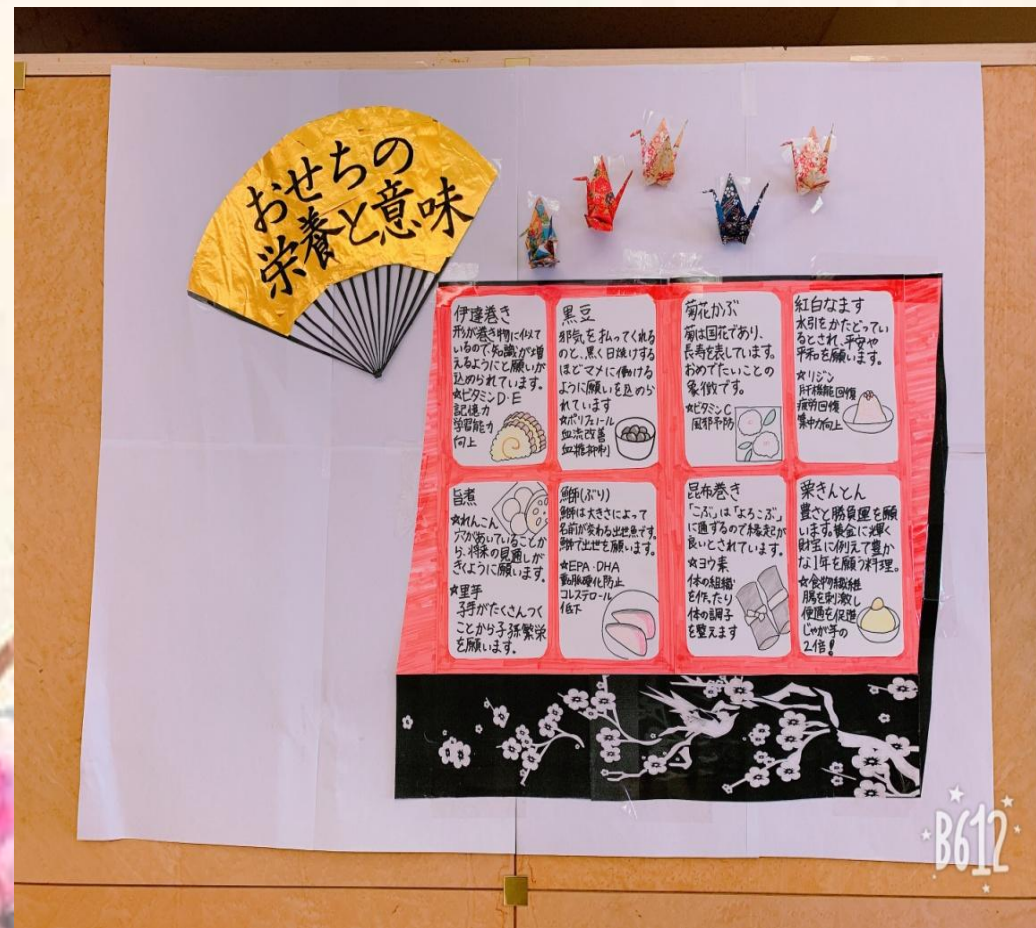 おせちの
栄養と意味
伊達巻き
形が巻き物に似て
いるので、知識が増
えるようにと願いが
込められています。
☆ビタミンD・E
記憶力
学習能力
向上
黒豆
邪気を払ってくれる
のと、黒く日焼けする
ほどマメに働ける
ように願いを込めら
れています
☆ポリフェノール
血流改善
血糖抑制
菊花かぶ
菊は国花であり、
長寿を表しています。
おめでたいことの
象徴です。
☆ビタミンC
風邪予防
紅白なます
水引をかたどってい
るとされ、平安や
平和を願います。
☆リジン
肝機能回復
疲労回復
集中力向上
旨煮
☆れんこん
穴があいていることか
ら、将来の見通しが
きくように願います。
☆里芋
子芋がたくさんつく
ことから子孫繁栄
を願います。
鰤(ぶり)
鰤は大きさによって
名前が変わる出世魚です。
鰤で出世を願います。
☆EPA・DHA
動脈硬化防止
コレステロール
低下
昆布巻き
「こぶ」は「よろこぶ」
に通ずるので縁起が
良いとされています。
☆ヨウ素
体の組織
を作ったり
体の調子
を整えます
栗きんとん
豊さと勝負運を願
います。黄金に輝く
財宝に例えて豊か
な1年を願う料理。
☆食物繊維
腸を刺激し
便通を促進
じゃが芋の
2倍!
B612